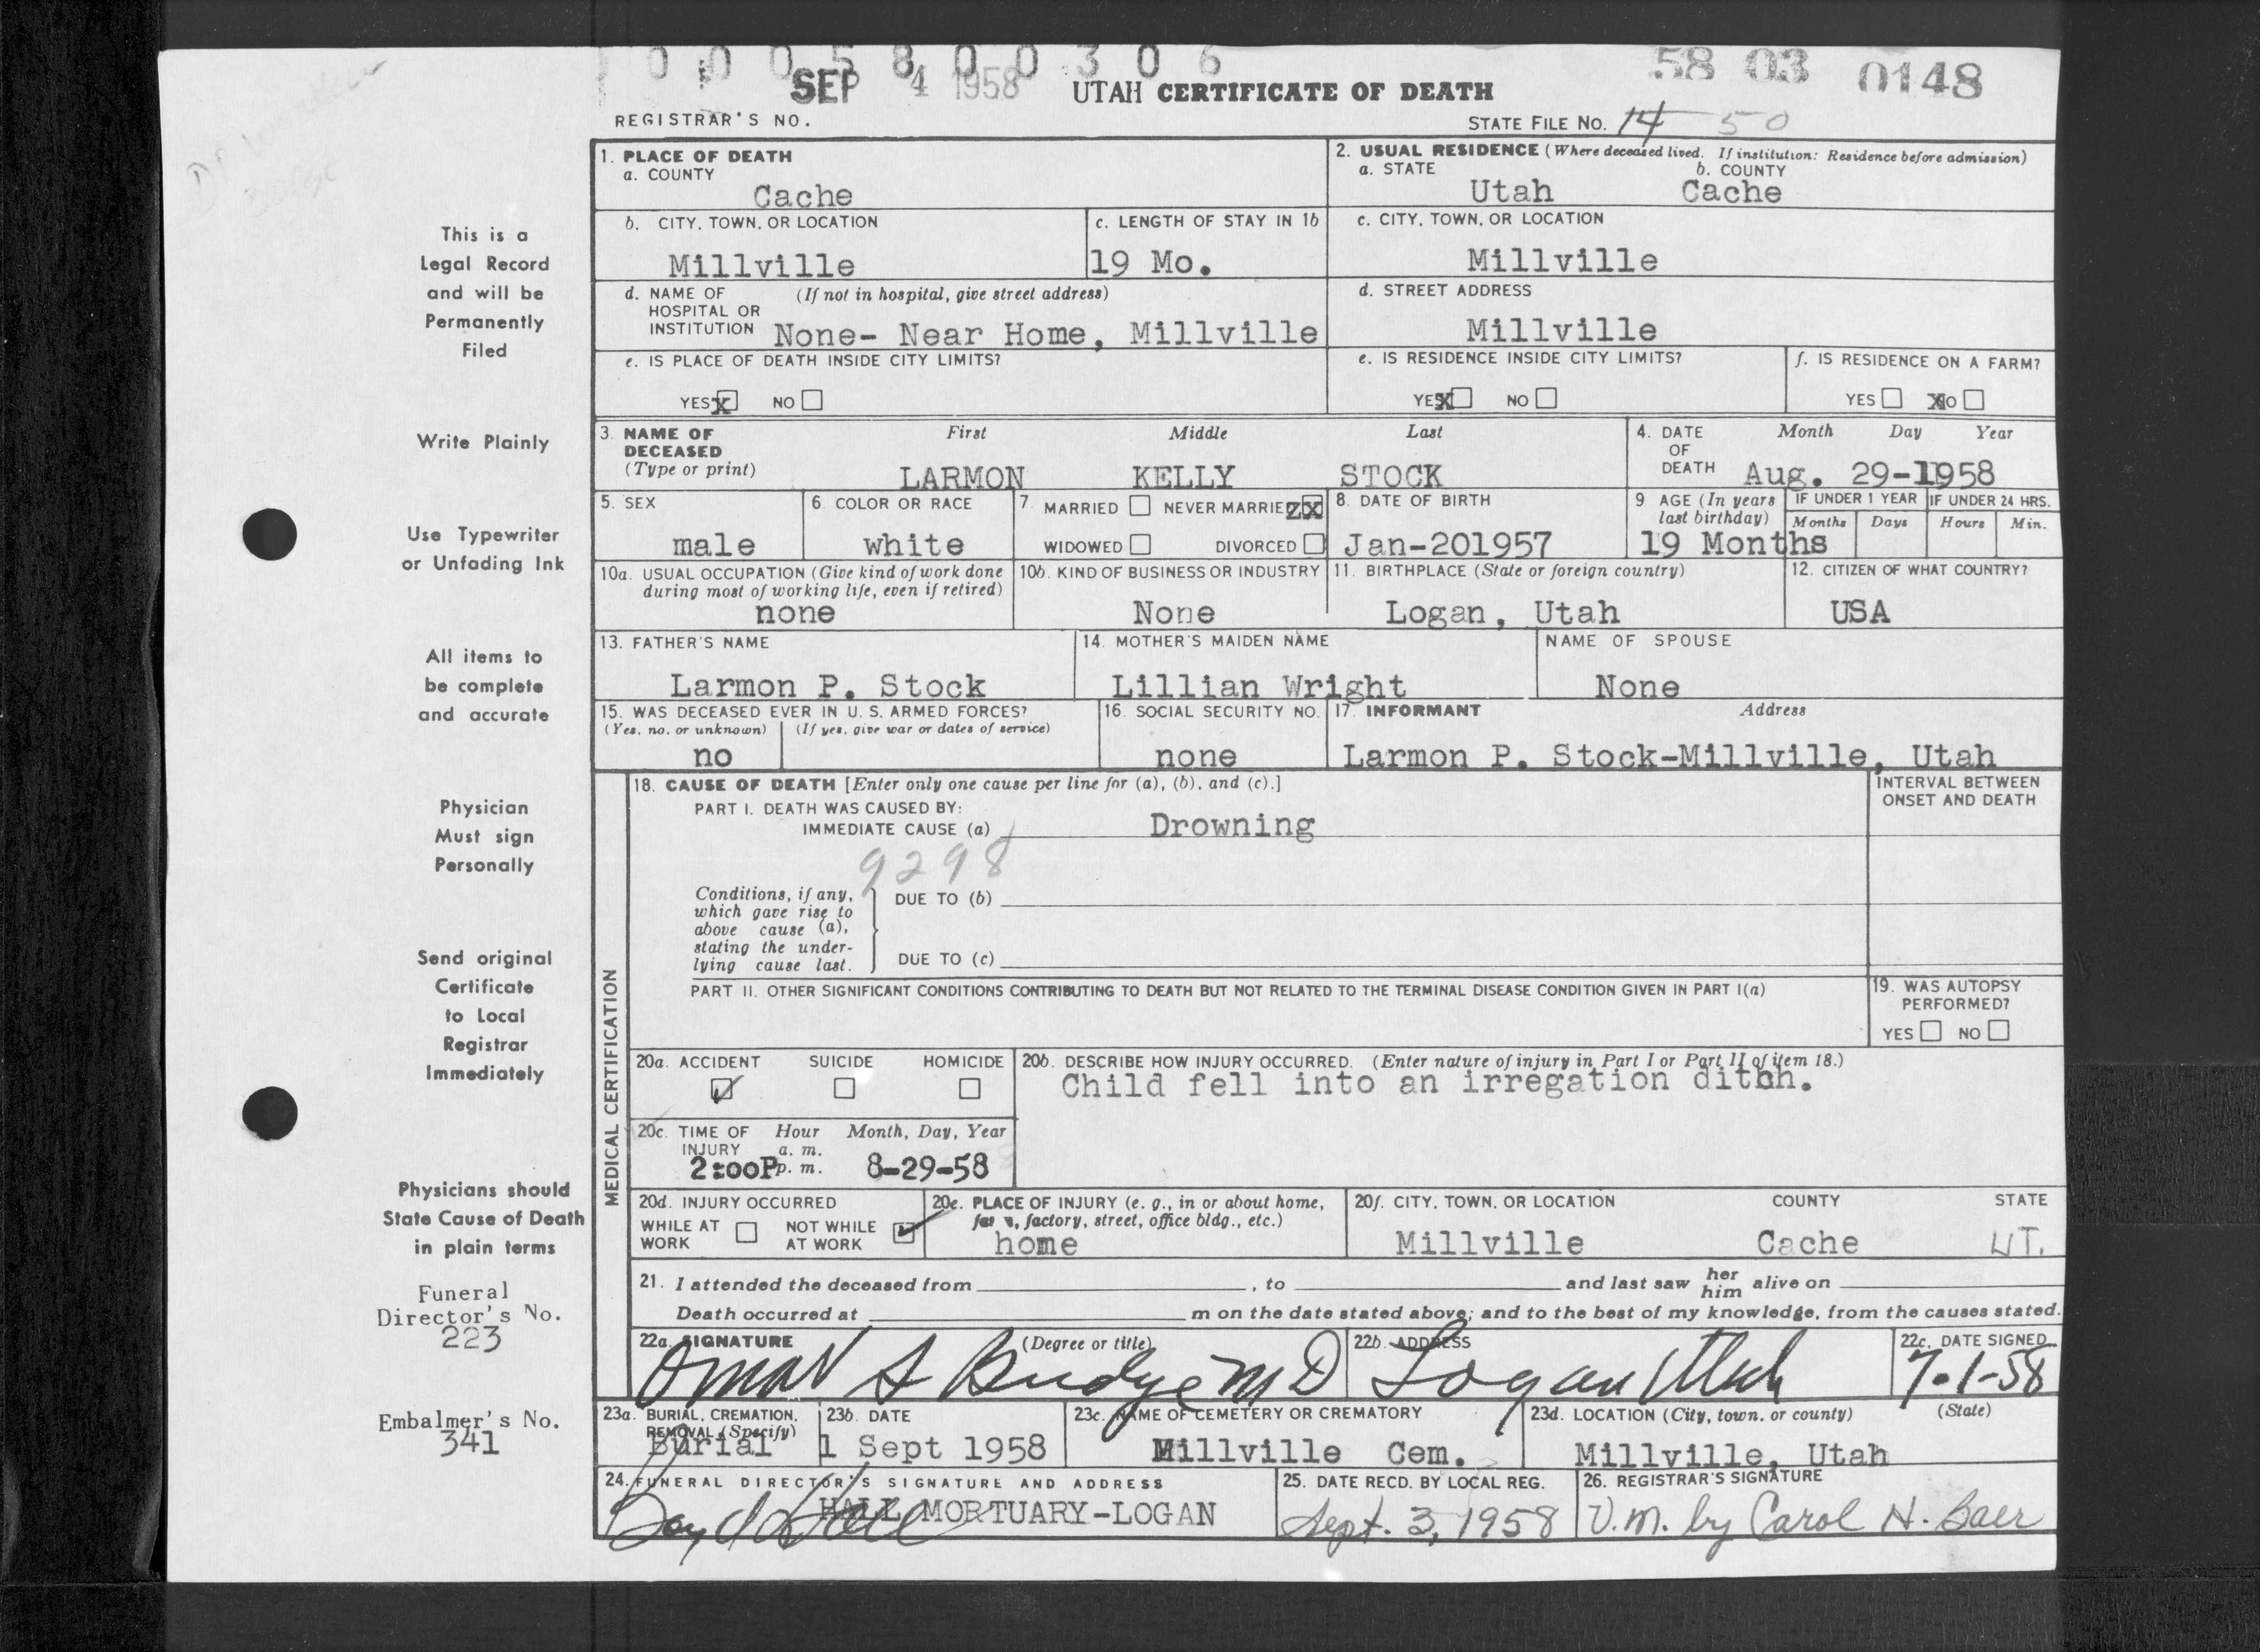 0 0 0 5 8 0 0 3 0 6
58 03 0148
SEP 4 1958
UTAH CERTIFICATE OF DEATH
REGISTRAR'S NO.
STATE FILE NO. 14 50
1. PLACE OF DEATH
a. COUNTY
Cache
2. USUAL RESIDENCE (Where deceased lived. If institution: Residence before admission)
a. STATE b. COUNTY
Utah Cache
b. CITY, TOWN, OR LOCATION
Millville
c. LENGTH OF STAY IN 1b
19 Mo.
c. CITY, TOWN, OR LOCATION
Millville
d. NAME OF HOSPITAL OR INSTITUTION (If not in hospital, give street address)
None- Near Home, Millville
d. STREET ADDRESS
Millville
e. IS PLACE OF DEATH INSIDE CITY LIMITS?
YES X NO
e. IS RESIDENCE INSIDE CITY LIMITS?
YES X NO
f. IS RESIDENCE ON A FARM?
YES X NO
3. NAME OF DECEASED (Type or print)
First Middle Last
LARMON KELLY STOCK
4. DATE OF DEATH Month Day Year
Aug. 29-1958
5. SEX
male
6. COLOR OR RACE
white
7. MARRIED NEVER MARRIED X
WIDOWED DIVORCED
8. DATE OF BIRTH
Jan-201957
9 AGE (In years last birthday)
IF UNDER 1 YEAR IF UNDER 24 HRS.
Months Days Hours Min.
19 Months
10a. USUAL OCCUPATION (Give kind of work done during most of working life, even if retired)
none
10b. KIND OF BUSINESS OR INDUSTRY
None
11. BIRTHPLACE (State or foreign country)
Logan, Utah
12. CITIZEN OF WHAT COUNTRY?
USA
13. FATHER'S NAME
Larmon P. Stock
14. MOTHER'S MAIDEN NAME
Lillian Wright
NAME OF SPOUSE
None
15. WAS DECEASED EVER IN U. S. ARMED FORCES?
(Yes, no, or unknown) (If yes, give war or dates of service)
no
16. SOCIAL SECURITY NO.
none
17. INFORMANT Address
Larmon P. Stock-Millville, Utah
MEDICAL CERTIFICATION
18. CAUSE OF DEATH [Enter only one cause per line for (a), (b), and (c).]
INTERVAL BETWEEN ONSET AND DEATH
PART I. DEATH WAS CAUSED BY:
IMMEDIATE CAUSE (a) Drowning
9298
Conditions, if any, which gave rise to above cause (a), stating the underlying cause last.
DUE TO (b)
DUE TO (c)
PART II. OTHER SIGNIFICANT CONDITIONS CONTRIBUTING TO DEATH BUT NOT RELATED TO THE TERMINAL DISEASE CONDITION GIVEN IN PART I(a)
19. WAS AUTOPSY PERFORMED?
YES NO
20a. ACCIDENT SUICIDE HOMICIDE
20b. DESCRIBE HOW INJURY OCCURRED. (Enter nature of injury in Part I or Part II of item 18.)
Child fell into an irregation ditch.
20c. TIME OF INJURY Hour Month, Day, Year
a. m.
2:00P p. m. 8-29-58
20d. INJURY OCCURRED
WHILE AT WORK NOT WHILE AT WORK
20e. PLACE OF INJURY (e. g., in or about home, farm, factory, street, office bldg., etc.)
home
20f. CITY, TOWN, OR LOCATION COUNTY STATE
Millville Cache UT.
21. I attended the deceased from , to and last saw her him alive on
Death occurred at m on the date stated above; and to the best of my knowledge, from the causes stated.
22a. SIGNATURE (Degree or title)
Omar S Budge MD
22b. ADDRESS
Logan Utah
22c. DATE SIGNED
7-1-58
23a. BURIAL, CREMATION, REMOVAL (Specify)
Burial
23b. DATE
1 Sept 1958
23c. NAME OF CEMETERY OR CREMATORY
Millville Cem.
23d. LOCATION (City, town, or county) (State)
Millville, Utah
24. FUNERAL DIRECTOR'S SIGNATURE AND ADDRESS
Boyd Hall HALL MORTUARY-LOGAN
25. DATE RECD. BY LOCAL REG.
Sept. 3, 1958
26. REGISTRAR'S SIGNATURE
V.M. by Carol H. Baer
This is a
Legal Record
and will be
Permanently
Filed
Write Plainly
Use Typewriter
or Unfading Ink
All items to
be complete
and accurate
Physician
Must sign
Personally
Send original
Certificate
to Local
Registrar
Immediately
Physicians should
State Cause of Death
in plain terms
Funeral
Director's No.
223
Embalmer's No.
341